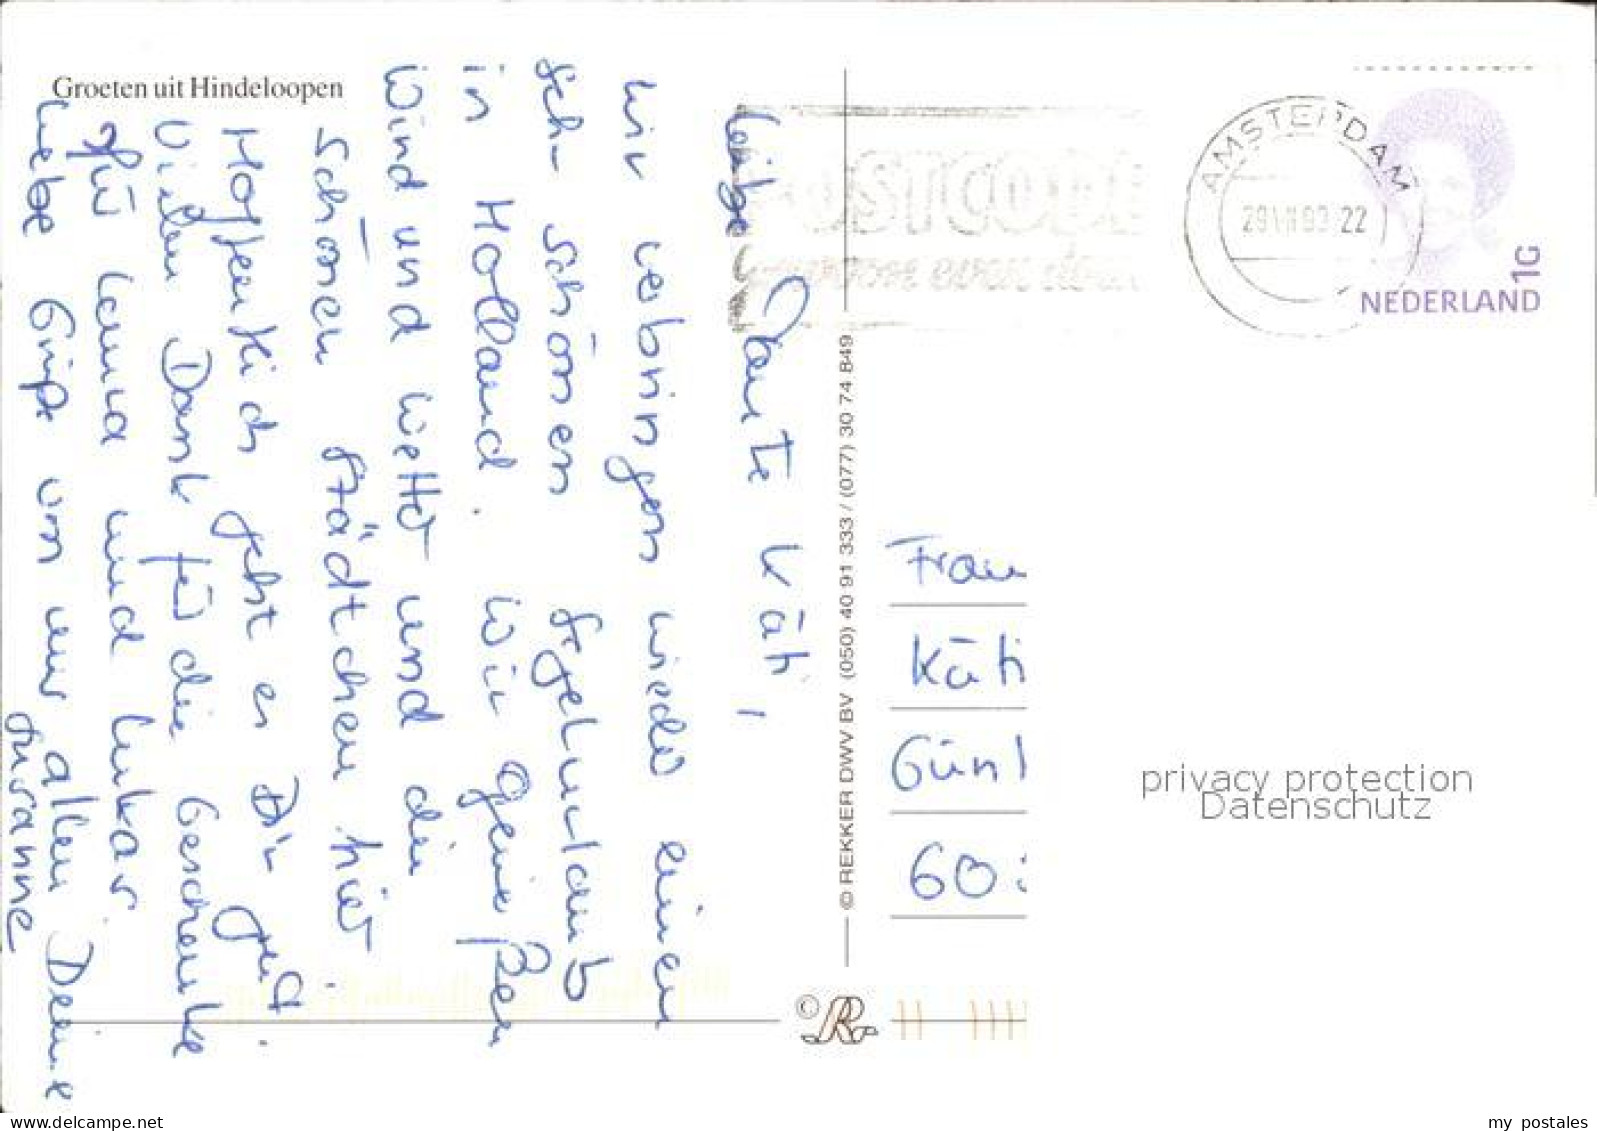 Groeten uit Hindeloopen
Liebe Tante Käti,
wir verbringen wieder einen
sch- schönen Segelurlaub
in Holland. Wir genießen
Wind und Wetter und die
schönen Städtchen hier.
Hoffentlich geht es Dir gut.
Vielen Dank für die Geschenke
für und Lukas.
Liebe Grüße von uns allen Deine
Susanne
© REKKER DWV BV (050) 40 91 333 / (077) 30 74 849
©R
POSTCODE
AMSTERDAM
22
1G
NEDERLAND
Frau
Käti
Gün
60
privacy protection
Datenschutz
delcampe.net
my_postales